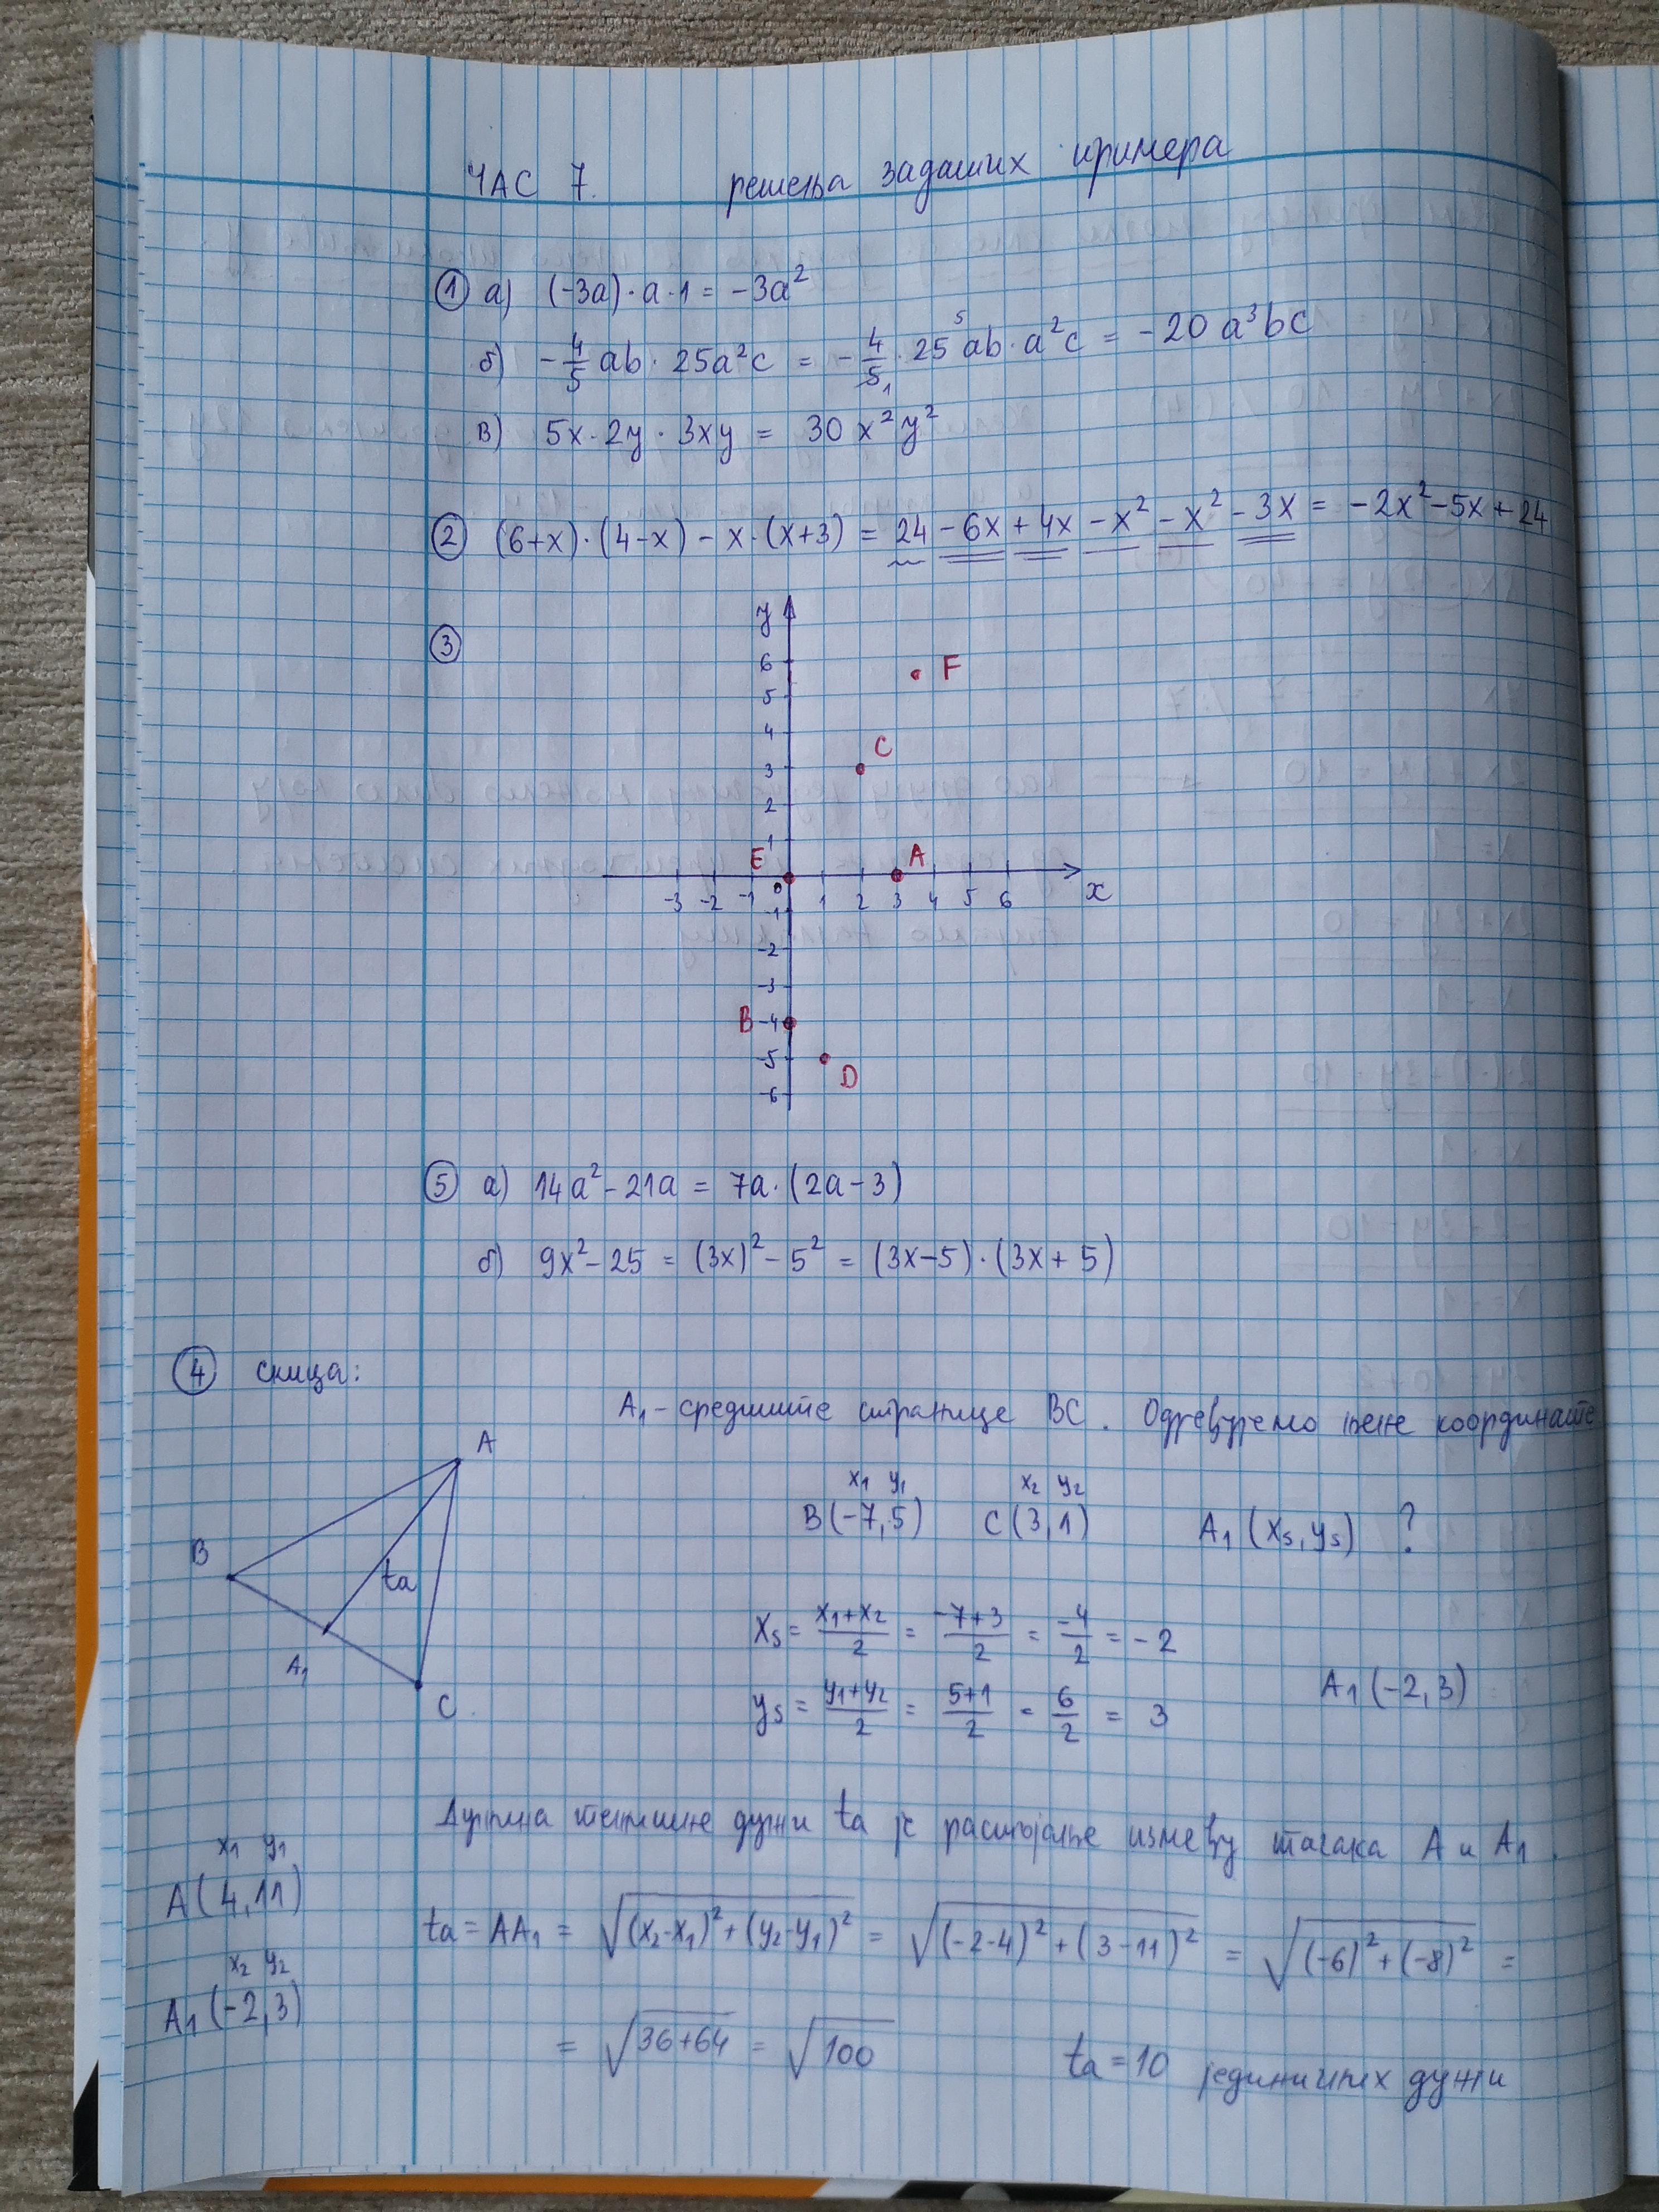 ЧАС 7. решења задатих примера
① а) (-3a)·a·1 = -3a²
б) -4/5 ab · 25a²c = -4/5₁ · 25⁵ ab·a²c = -20 a³bc
в) 5x·2y·3xy = 30 x²y²
② (6+x)·(4-x) - x·(x+3) = 24 - 6x + 4x - x² - x² - 3x = -2x² - 5x + 24
③
y
6
F
5
4
C
3
2
1
E A
0
-3 -2 -1 1 2 3 4 5 6 x
-1
-2
-3
B -4
-5
D
-6
⑤ а) 14a² - 21a = 7a·(2a-3)
б) 9x² - 25 = (3x)² - 5² = (3x-5)·(3x+5)
④ скица:
A₁ - средиште странице BC. Одредујемо њене координате
A
B
ta
A₁
C
x₁ y₁ x₂ y₂
B(-7,5) C(3,1) A₁(xs, ys) ?
xs = x₁+x₂/2 = -7+3/2 = -4/2 = -2
ys = y₁+y₂/2 = 5+1/2 = 6/2 = 3
A₁(-2,3)
Дужина тежишне дужи ta је растојање између тачака A и A₁.
x₁ y₁
A(4,11)
x₂ y₂
A₁(-2,3)
ta = AA₁ = √(x₂-x₁)²+(y₂-y₁)² = √(-2-4)²+(3-11)² = √(-6)²+(-8)² =
= √36+64 = √100 ta = 10 јединичних дужи